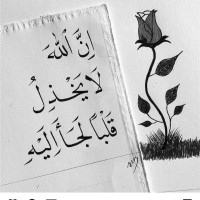 اِنَّ اللّٰهَ
لَا يَخْذِلُ
قَلْبًا لَجَأَ اِلَيْهِ